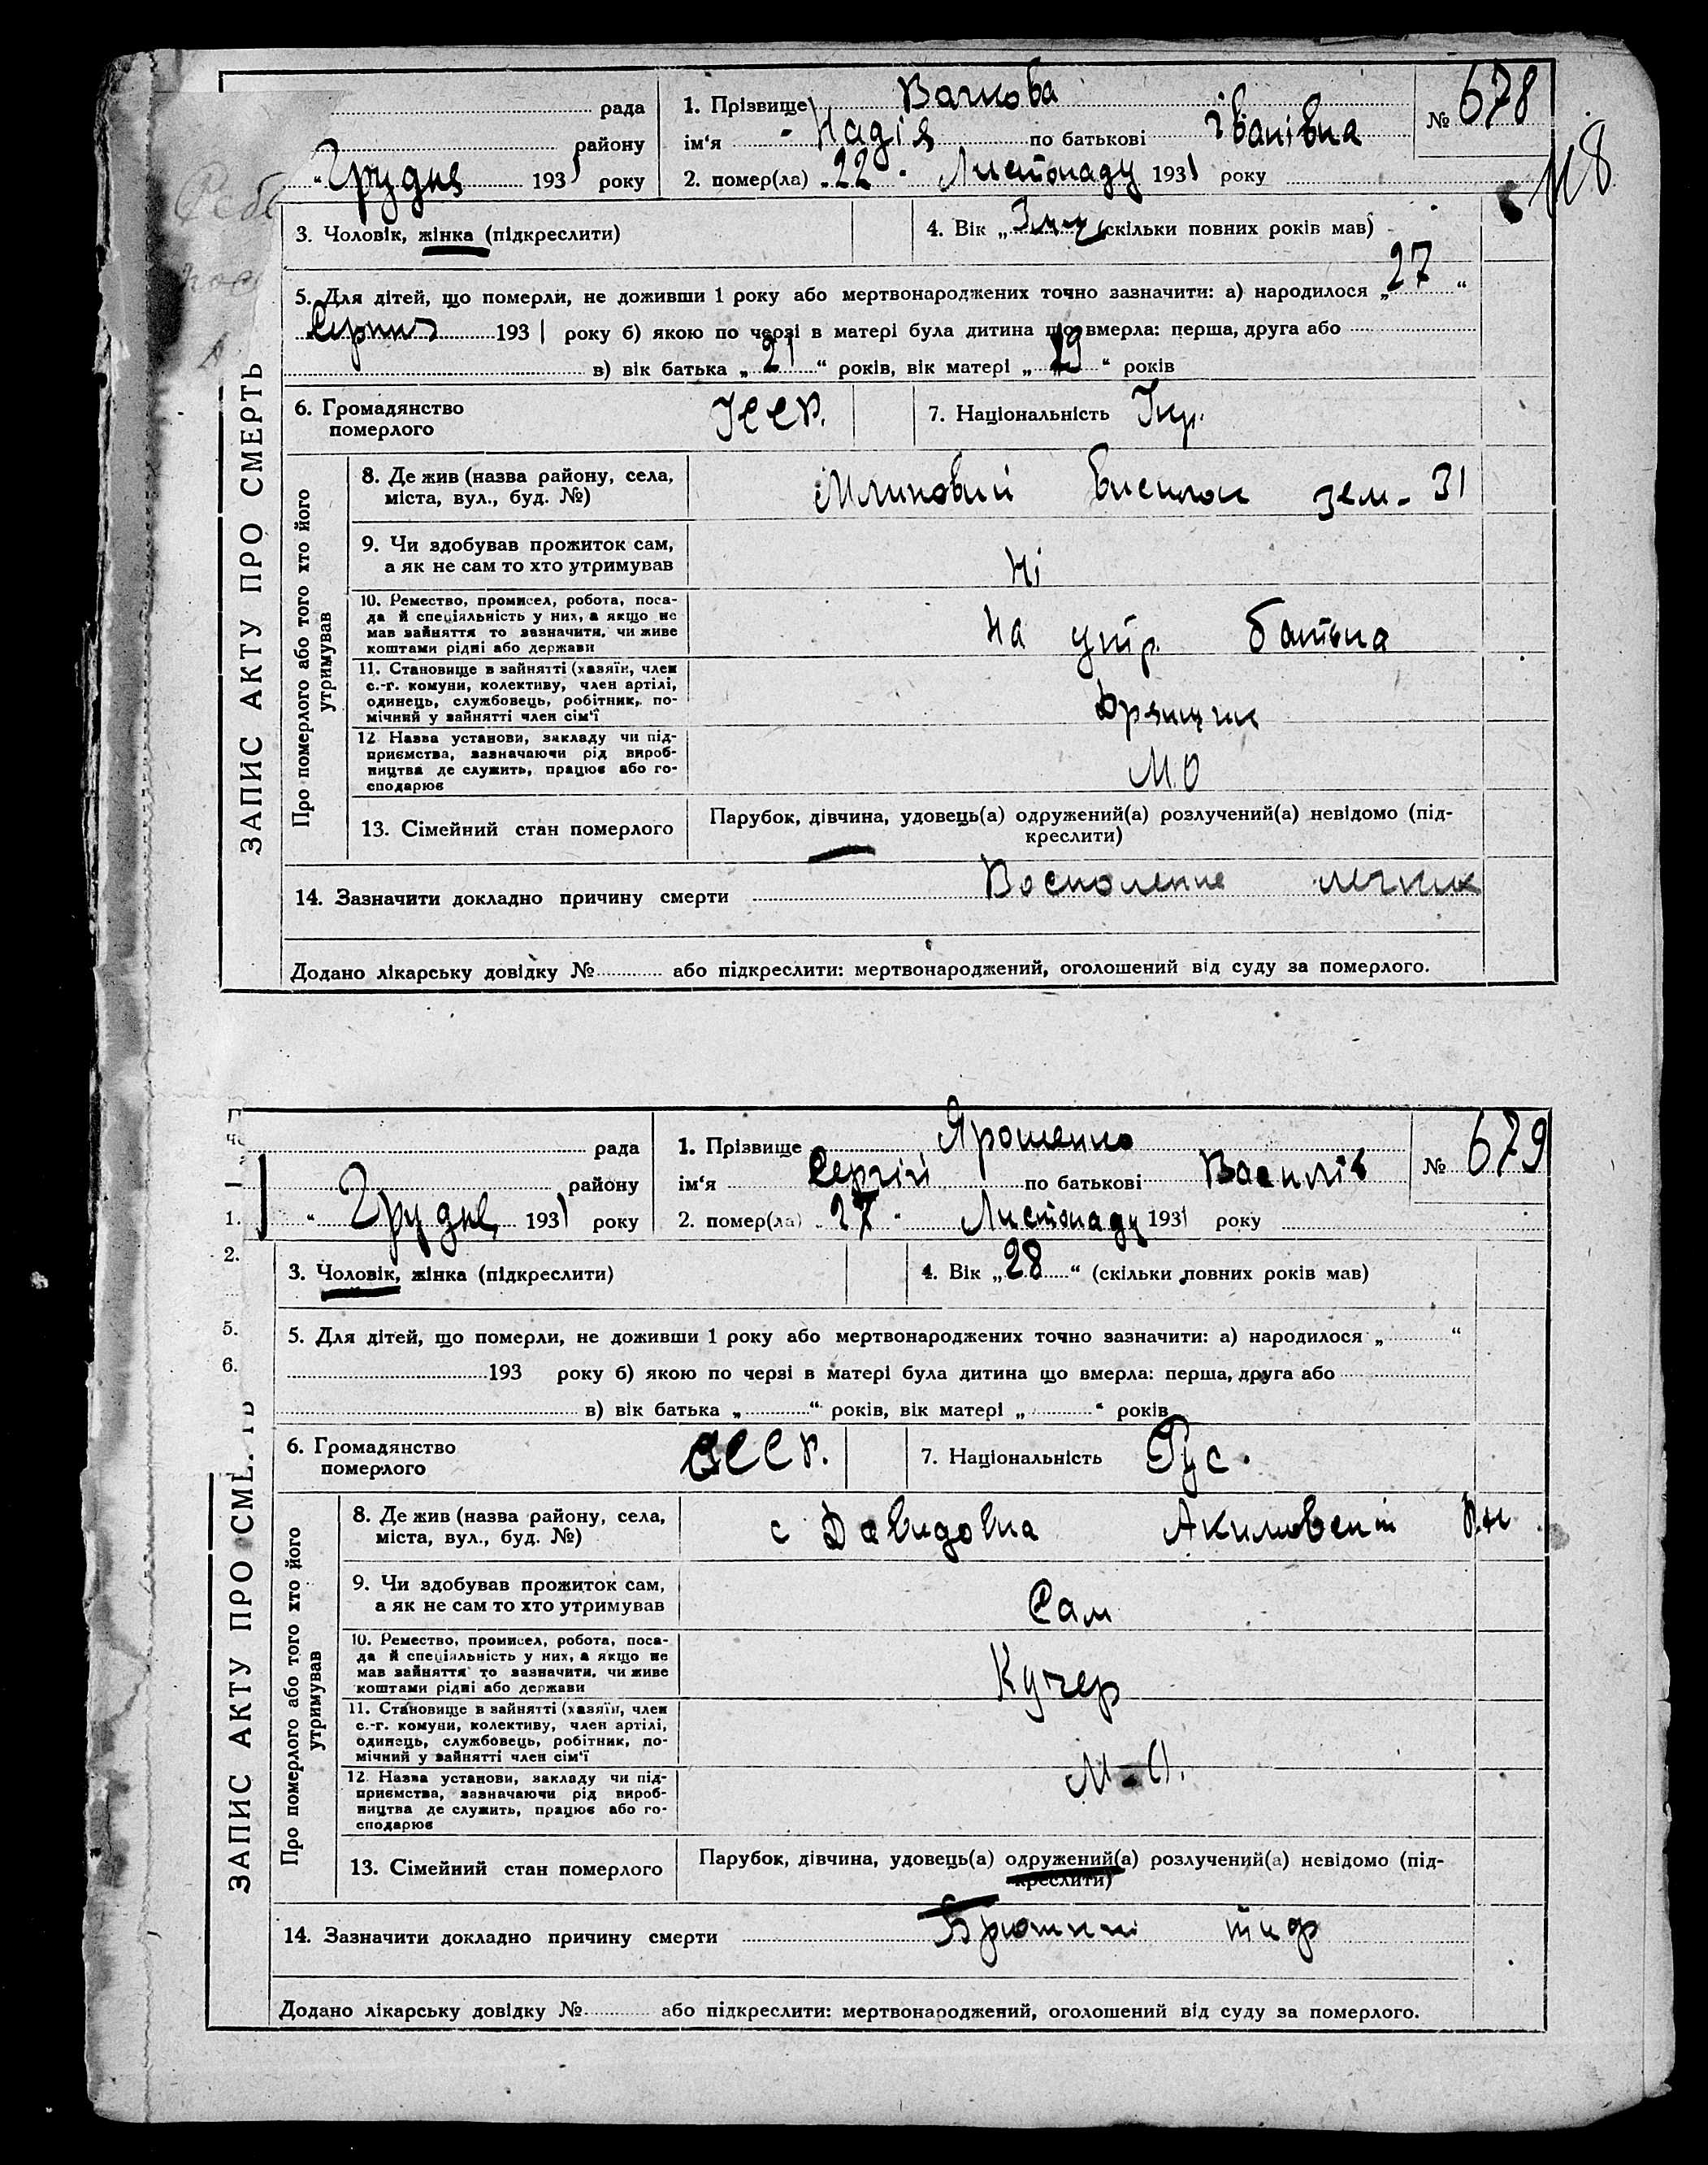 рада
1. Прізвище Вачкова
№ 678
району
ім'я Надія по батькові Іванівна
118
" Грудня 1931 року
2. помер(ла) „ 22 " Листопаду 1931 року
3. Чоловік, жінка (підкреслити)
4. Вік „ 3 (скільки повних років мав)
5. Для дітей, що померли, не доживши 1 року або мертвонароджених точно зазначити: а) народилося „ 27 "
Серпня 1931 року б) якою по черзі в матері була дитина що вмерла: перша, друга або
в) вік батька „ 21 " років, вік матері „ 19 " років
6. Громадянство
померлого
УССР.
7. Національність Укр.
ЗАПИС АКТУ ПРО СМЕРТЬ
Про померлого або того хто його
утримував
8. Де жив (назва району, села,
міста, вул., буд. №)
Млиновий висилок зем- 31
9. Чи здобував прожиток сам,
а як не сам то хто утримував
Ні
10. Ремество, промисел, робота, поса-
да й спеціяльність у них, а якщо не
мав зайняття то зазначити, чи живе
коштами рідні або держави
На утр. батька
11. Становище в зайнятті (хазяїн, член
с.-г. комуни, колективу, член артілі,
одинець, службовець, робітник, по-
мічний у зайнятті член сім'ї
12 Назва установи, закладу чи під-
приємства, зазначаючи рід вироб-
ництва де служить, працює або го-
сподарює
М.О
13. Сімейний стан померлого
Парубок, дівчина, удовець(а) одружений(а) розлучений(а) невідомо (під-
креслити)
14. Зазначити докладно причину смерти Воспаление легких
Додано лікарську довідку № або підкреслити: мертвонароджений, оголошений від суду за померлого.
рада
1. Прізвище Ярошенко
№ 679
району
ім'я Сергій по батькові Василів
1.
" Грудня 1931 року
2. помер(ла) „ 27 " Листопаду 1931 року
2.
3. Чоловік, жінка (підкреслити)
4. Вік „ 28 " (скільки повних років мав)
5.
5. Для дітей, що померли, не доживши 1 року або мертвонароджених точно зазначити: а) народилося „ "
6.
193 року б) якою по черзі в матері була дитина що вмерла: перша, друга або
в) вік батька „ " років, вік матері „ " років
6. Громадянство
померлого
УССР.
7. Національність Рус.
ЗАПИС АКТУ ПРО СМЕ
Про померлого або того хто його
утримував
8. Де жив (назва району, села,
міста, вул., буд. №)
с Давидовка Акимовск Р.н
9. Чи здобував прожиток сам,
а як не сам то хто утримував
Сам
10. Ремество, промисел, робота, поса-
да й спеціяльність у них, а якщо не
мав зайняття то зазначити, чи живе
коштами рідні або держави
Кучер
11. Становище в зайнятті (хазяїн, член
с.-г. комуни, колективу, член артілі,
одинець, службовець, робітник, по-
мічний у зайнятті член сім'ї
М-О.
12 Назва установи, закладу чи під-
приємства, зазначаючи рід вироб-
ництва де служить, працює або го-
сподарює
13. Сімейний стан померлого
Парубок, дівчина, удовець(а) одружений(а) розлучений(а) невідомо (під-
креслити)
14. Зазначити докладно причину смерти Брюшний тиф
Додано лікарську довідку № або підкреслити: мертвонароджений, оголошений від суду за померлого.